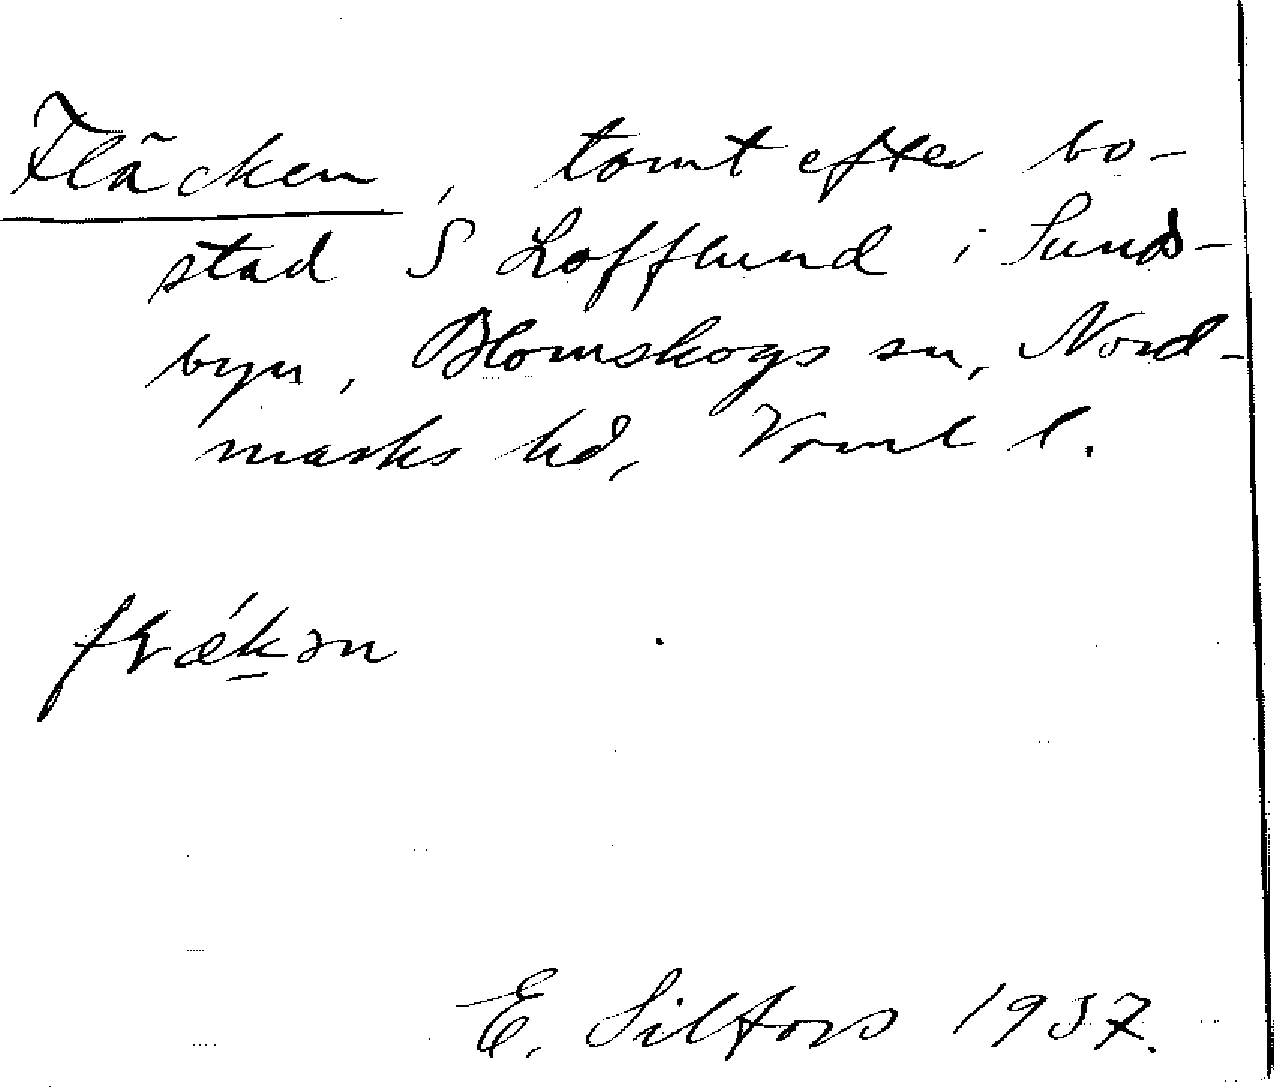 Fläcken, tomt efter bo-
stad S Lofflund i Sunds-
byn, Blomskogs sn, Nord-
marks hd, Vrml l.
fɽǽkən
E. Silfors 1937.